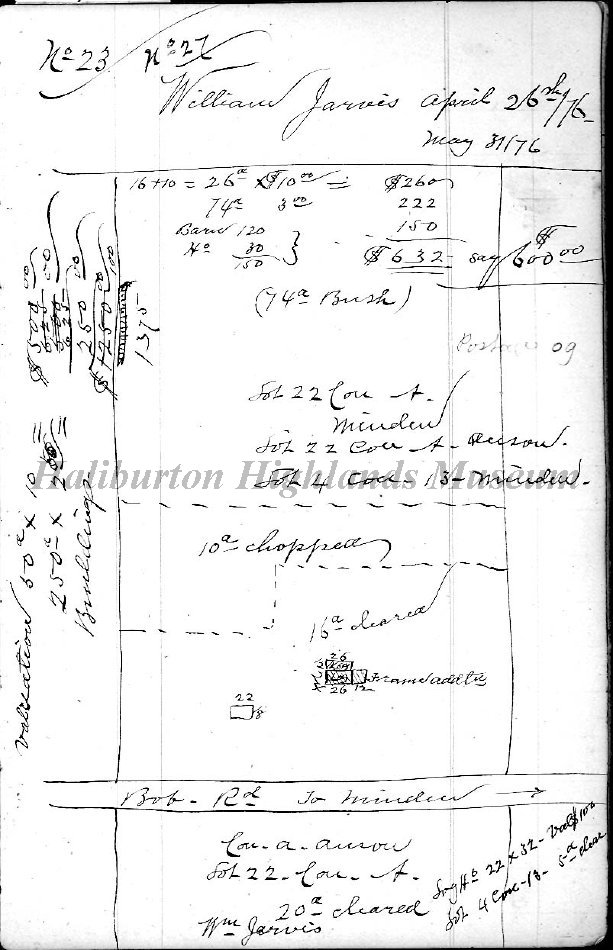 No 23 No 27
William Jarvis April 26th/76
May 31/76
16+10 = 26a x $10 00 = $260
74a 3 00 222
Barn 120 150
Ho 30
150
$632 say $600 00
(74a Bush)
09
Lot 22 Con A.
Minden
Lot 22 Con A Anson.
Lot 4 Con 13 Minden.
Haliburton Highlands Museum
10a chopped
16a cleared
26
26 12 Frame addtn
22
18
Valuation 50a x 10 = $500 00
250a x 2 50 = 625
Buildings 250 00
$1250 00
1375
Bob. Rd To Minden
Con. A. Anson
Lot 22. Con. A.
20a cleared
Wm Jarvis
Log Ho 22 x 32 - Val $100
Lot 4 Con 13 - 5a clear